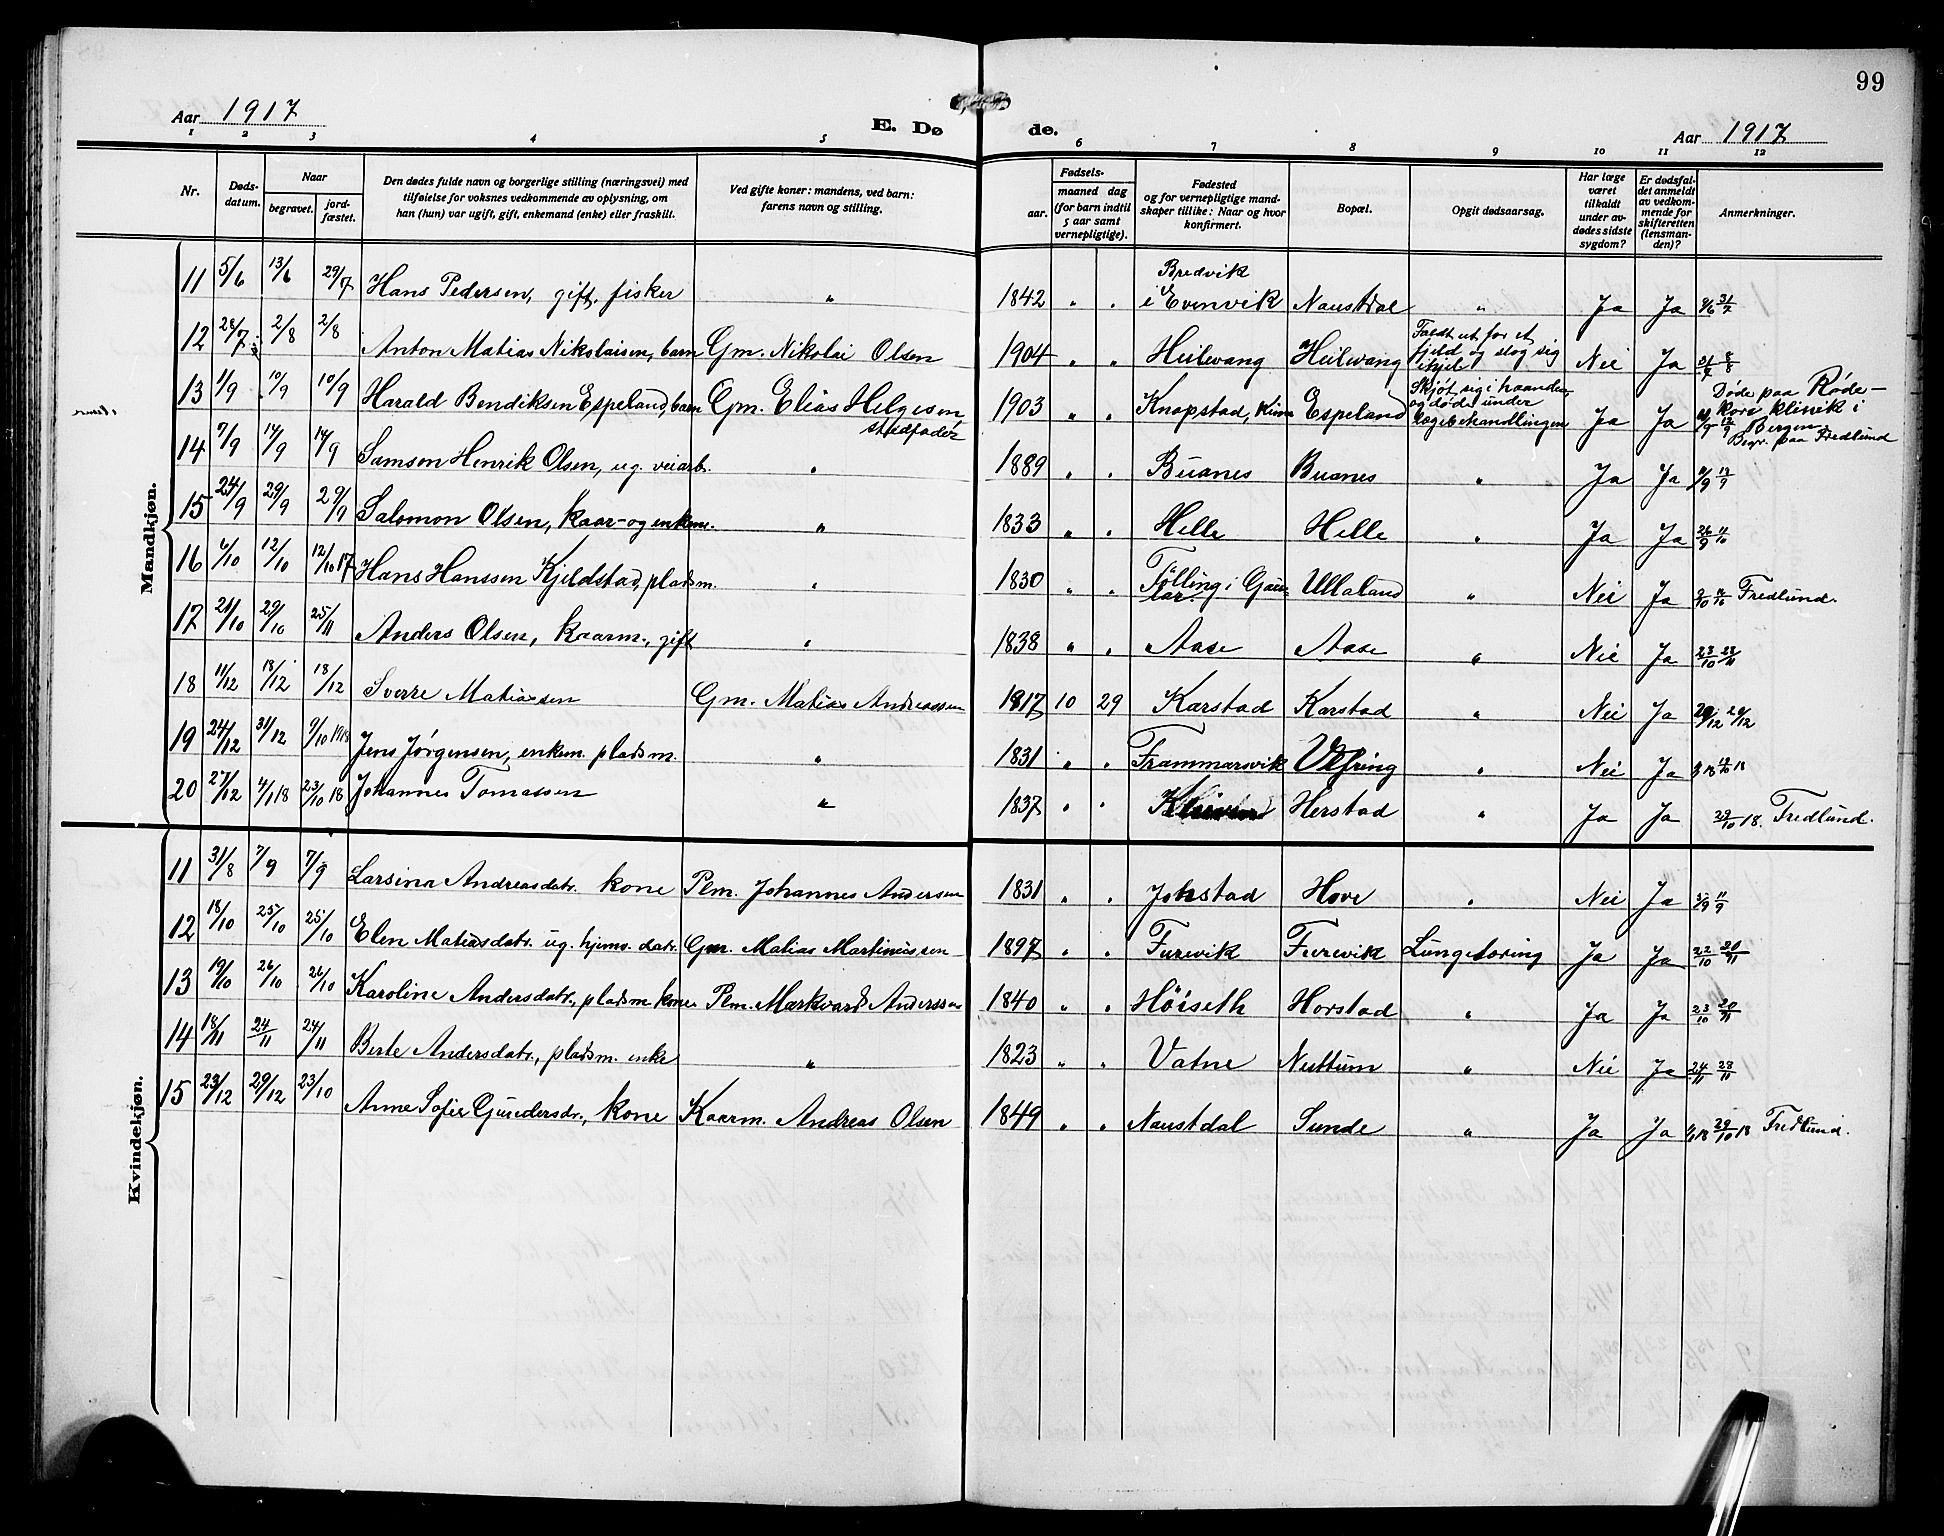 99
Aar 1917
E. Dø de.
Aar 1917
1 2 3 4 5 6 7 8 9 10 11 12
Nr.
Døds-
datum.
Naar
begravet.
jord-
fæstet.
Den dødes fulde navn og borgerlige stilling (næringsvei) med
tilføielse for voksnes vedkommende av oplysning, om
han (hun) var ugift, gift, enkemand (enke) eller fraskilt.
Ved gifte koner: mandens, ved barn:
farens navn og stilling.
Fødsels-
aar.
maaned dag
(for barn indtil
5 aar samt
vernepligtige).
Fødested
og for vernepligtige mand-
skaper tillike: Naar og hvor
konfirmert.
Bopæl.
Opgit dødsaarsag.
Har læge
været
tilkaldt
under av-
dødes sidste
sygdom?
Er dødsfal-
det anmeldt
av vedkom-
mende for
skifteretten
(lensman-
den)?
Anmerkninger.
Mandkjøn.
11 5/6 13/6 29/7 Hans Pedersen, gift, fisker " 1842 " " Bredvik i Evenvik Naustdal " Ja Ja 9/6 31/7
12 28/7 2/8 2/8 Anton Matias Nikolaisen, barn Gm. Nikolai Olsen 1904 " " Heilevang Heilevang Faldt ut for et fjeld og slog sig ihjel Nei Ja 31/7 8/8
13 1/9 10/9 10/9 Harald Bendiksen Espeland, barn Gm. Elias Helgesen stedfader 1903 " " Knapstad, Kinn Espeland Skjøt sig i haanden, og døde under lægebehandlingen Ja Ja 12/9 Døde paa Røde- kors klinik i Bergen. Begr. paa Fredlund
14 7/9 14/9 14/9 Samson Henrik Olsen, ug. veiarb. " 1889 " " Buanes Buanes " Ja Ja 11/9 17/9
15 24/9 29/9 29/9 Salomon Olsen, kaar- og enkem. " 1833 " " Helle Helle " Ja Ja 26/9 4/10
16 4/10 12/10 12/10 17 Hans Hanssen Kjeldstad, pladsm. " 1830 " " Tölling i Gaular Ullaland " Nei Ja Fredlund.
17 21/10 29/10 25/11 Anders Olsen, kaarm., gift " 1838 " " Aase Aase " Nei Ja 23/10 28/11
18 11/12 18/12 18/12 Sverre Matiassen Gm. Matias Andreassen 1917 10 29 Karstad Karstad " Nei Ja 20/12 20/12
19 24/12 31/12 9/10 1918 Jens Jørgensen, enkem. pladsm. " 1831 " " Frammarsvik Vefring " Nei Ja
20 27/12 4/1 18 23/10 18 Johannes Tomassen " 1837 " " Herstad " Ja Ja 29/10 18. Fredlund.
Kvindekjøn.
11 31/8 7/9 7/9 Larsina Andreasdatr. kone Plm. Johannes Andersen 1831 " " Johstad Hove " Nei Ja 5/9 11/9
12 18/10 25/10 25/10 Elen Matiasdatr. ug. hjemv. datr. Gm. Matias Martinussen 1897 " " Furevik Furevik Lungetæring Ja Ja 22/10 20/11
13 19/10 26/10 26/10 Karoline Andersdatr., pladsm. kone Plm. Markvard Anderssen 1840 " " Höiseth Horstad " Ja Ja 23/10 20/11
14 18/11 24/11 24/11 Berte Andersdatr., pladsm. enke " 1823 " " Vatne Nettum " Nei Ja 24/11 28/11
15 23/12 29/12 23/10 Anne Sofie Gundersdr., kone Kaarm. Andreas Olsen 1849 " " Naustdal Sunde " Ja Ja 29/10 18 Fredlund.